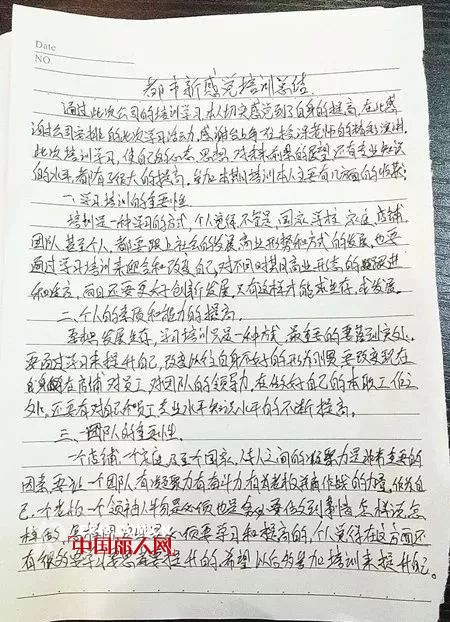 Date
NO.
都市新感觉培训总结
通过此次公司的培训学习,本人切实感觉到了自身的提高,在此感
谢公司安排的此次学习活动,感谢台上老师的精彩演讲.
此次培训学习,使自己的心态,思想,对未来前景的展望还有专业知识
的水平都有了很大的提高,参加本期培训本人主要有几方面的收获:
一.学习培训的重要性
培训是一种学习的方式,个人觉得不管是,国家,学校,家庭,店铺,
团队,甚至个人,都要跟上社会的发展,商业形势和方式的发展,也要
通过学习培训来迎合和改变自己,对不同时期商业形态的
和能力,而且还要更好创新发展,只有这样才能求生存,求发展.
二.个人的素质和能力的提高.
要想发展生存,学习培训只是一种方式,最重要的要落到实处.
要通过学习来提升自己,改变以往自身不好的行为习惯,要改变现在
在店铺对员工,对团队的领导力,在做好自己的本职工作之
外,还要有对自己和员工专业水平知识水平的不断提高.
三.团队的重要性.
一个店铺,一个家庭,乃至一个国家,人与人之间的凝聚力是非常重要的
因素,要让一个团队有凝聚力有奋斗力有并肩作战的力量,作为自
己,一个老板一个领袖人物是必须也是会要做到事情怎样说怎
样做,须要学习和提高的,个人觉得在这方面还
有很多要学习要提升的,希望以后多参加培训来提升自己。
中国丽人网